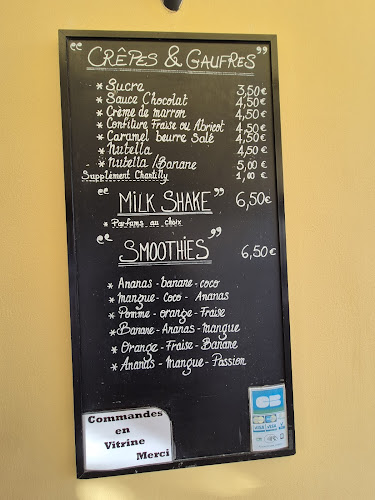 " CRÊPES & GAUFRES "
* Sucre 3,50€
* Sauce Chocolat 4,50€
* Crème de marron 4,50€
* Confiture Fraise ou Abricot 4,50€
* Caramel beurre Salé 4,50€
* Nutella 4,50€
* Nutella / Banane 5,00€
Supplément Chantilly 1,00€
" MILK SHAKE " 6,50€
* Parfums au choix
" SMOOTHIES " 6,50€
* Ananas - banane - coco
* Mangue - Coco - Ananas
* Pomme - orange - Fraise
* Banane - Ananas - mangue
* Orange - Fraise - Banane
* Ananas - Mangue - Passion
Commandes
en
Vitrine
Merci
CB